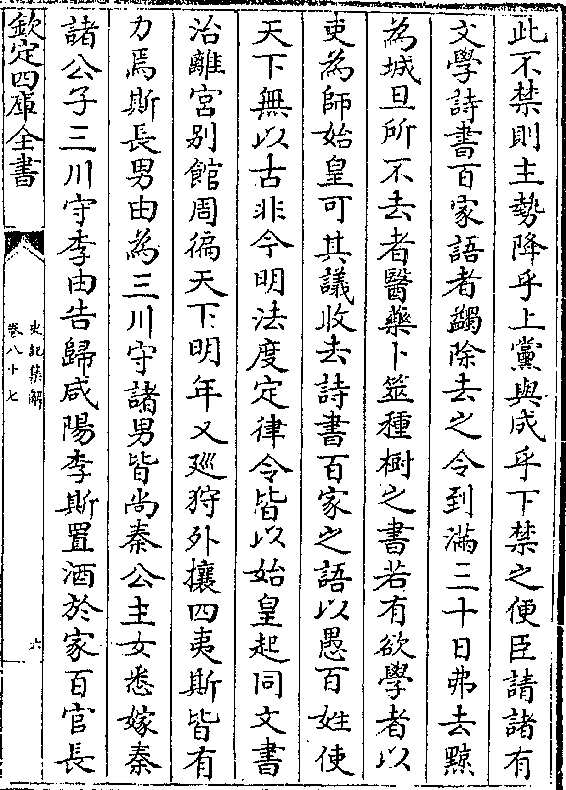 此不禁則主勢降乎上黨與成乎下禁之便臣請諸有
文學詩書百家語者蠲除去之令到滿三十日弗去黥
為城旦所不去者醫藥卜筮種樹之書若有欲學者以
吏為師始皇可其議收去詩書百家之語以愚百姓使
天下無以古非今明法度定律令皆以始皇起同文書
治離宮别館周徧天下明年又廵狩外攘四夷斯皆有
力焉斯長男由為三川守諸男皆尚秦公主女悉嫁秦
諸公子三川守李由告歸咸陽李斯置酒於家百官長
欽定四庫全書
史記集解
卷八十七
六